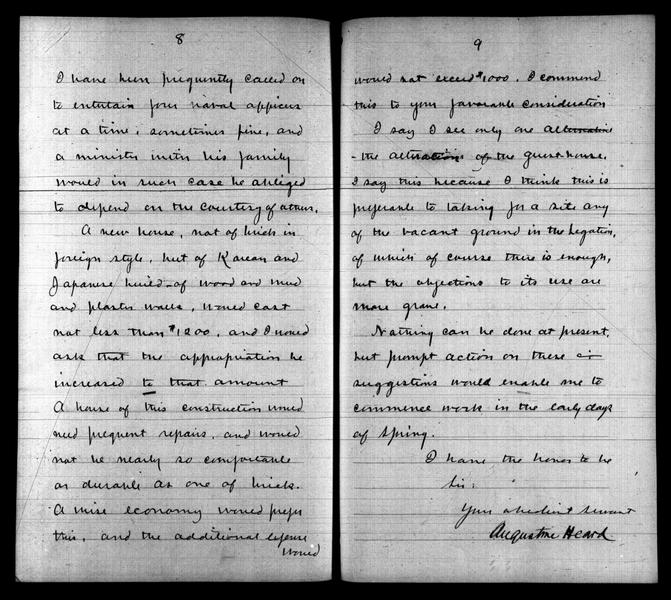 8
I have been frequently called on
to entertain four naval officers
at a time, sometimes five, and
a minister with his family
would in such case be obliged
to depend on the courtesy of others.
A new house, not of brick in
foreign style, but of Korean and
Japanese build - of wood and mud
and plaster walls, would cost
not less than $1200, and I would
ask that the appropriation be
increased to that amount
A house of this construction would
need frequent repairs, and would
not be nearly so comfortable
or durable as one of brick.
A wise economy would prefer
this, and the additional expense
would
9
would not exceed $1000. I commend
this to your favorable consideration
I say I see only one alternative
- the alteration of the guest house.
I say this because I think this is
preferable to taking for a site any
of the vacant ground in the Legation,
of which of course there is enough,
but the objections to its use are
more grave.
Nothing can be done at present,
but prompt action on these
suggestions would enable me to
commence work in the early days
of Spring.
I have the honor to be
Sir:
Your obedient servant
Augustine Heard